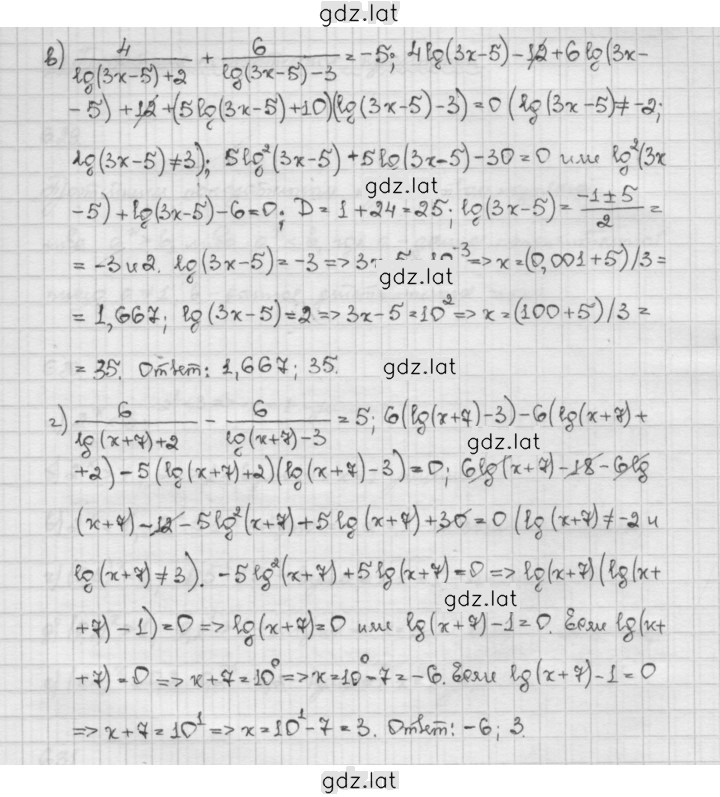 gdz.lat
в) 4/(lg(3x-5)+2) + 6/(lg(3x-5)-3) = -5; 4lg(3x-5)-12+6lg(3x-
-5)+12+(5lg(3x-5)+10)(lg(3x-5)-3)=0 (lg(3x-5)≠-2;
lg(3x-5)≠3); 5lg²(3x-5)+5lg(3x-5)-30=0 или lg²(3x
gdz.lat
-5)+lg(3x-5)-6=0; D=1+24=25; lg(3x-5)= (-1±5)/2 =
= -3 и 2. lg(3x-5)=-3 => 3x-5 10⁻³ => x=(0,001+5)/3=
gdz.lat
= 1,667; lg(3x-5)=2 => 3x-5=10² => x=(100+5)/3=
= 35. Ответ: 1,667; 35.
gdz.lat
г) 6/(lg(x+7)+2) - 6/(lg(x+7)-3) = 5; 6(lg(x+7)-3)-6(lg(x+7)+
gdz.lat
+2)-5(lg(x+7)+2)(lg(x+7)-3)=0; 6lg(x+7)-18-6lg
(x+7)-12-5lg²(x+7)+5lg(x+7)+30=0 (lg(x+7)≠-2 и
lg(x+7)≠3). -5lg²(x+7)+5lg(x+7)=0 => lg(x+7)(lg(x+
gdz.lat
+7)-1)=0 => lg(x+7)=0 или lg(x+7)-1=0. Если lg(x+
+7)=0 => x+7=10⁰ => x=10⁰-7=-6. Если lg(x+7)-1=0
=> x+7=10¹ => x=10¹-7=3. Ответ: -6; 3.
gdz.lat